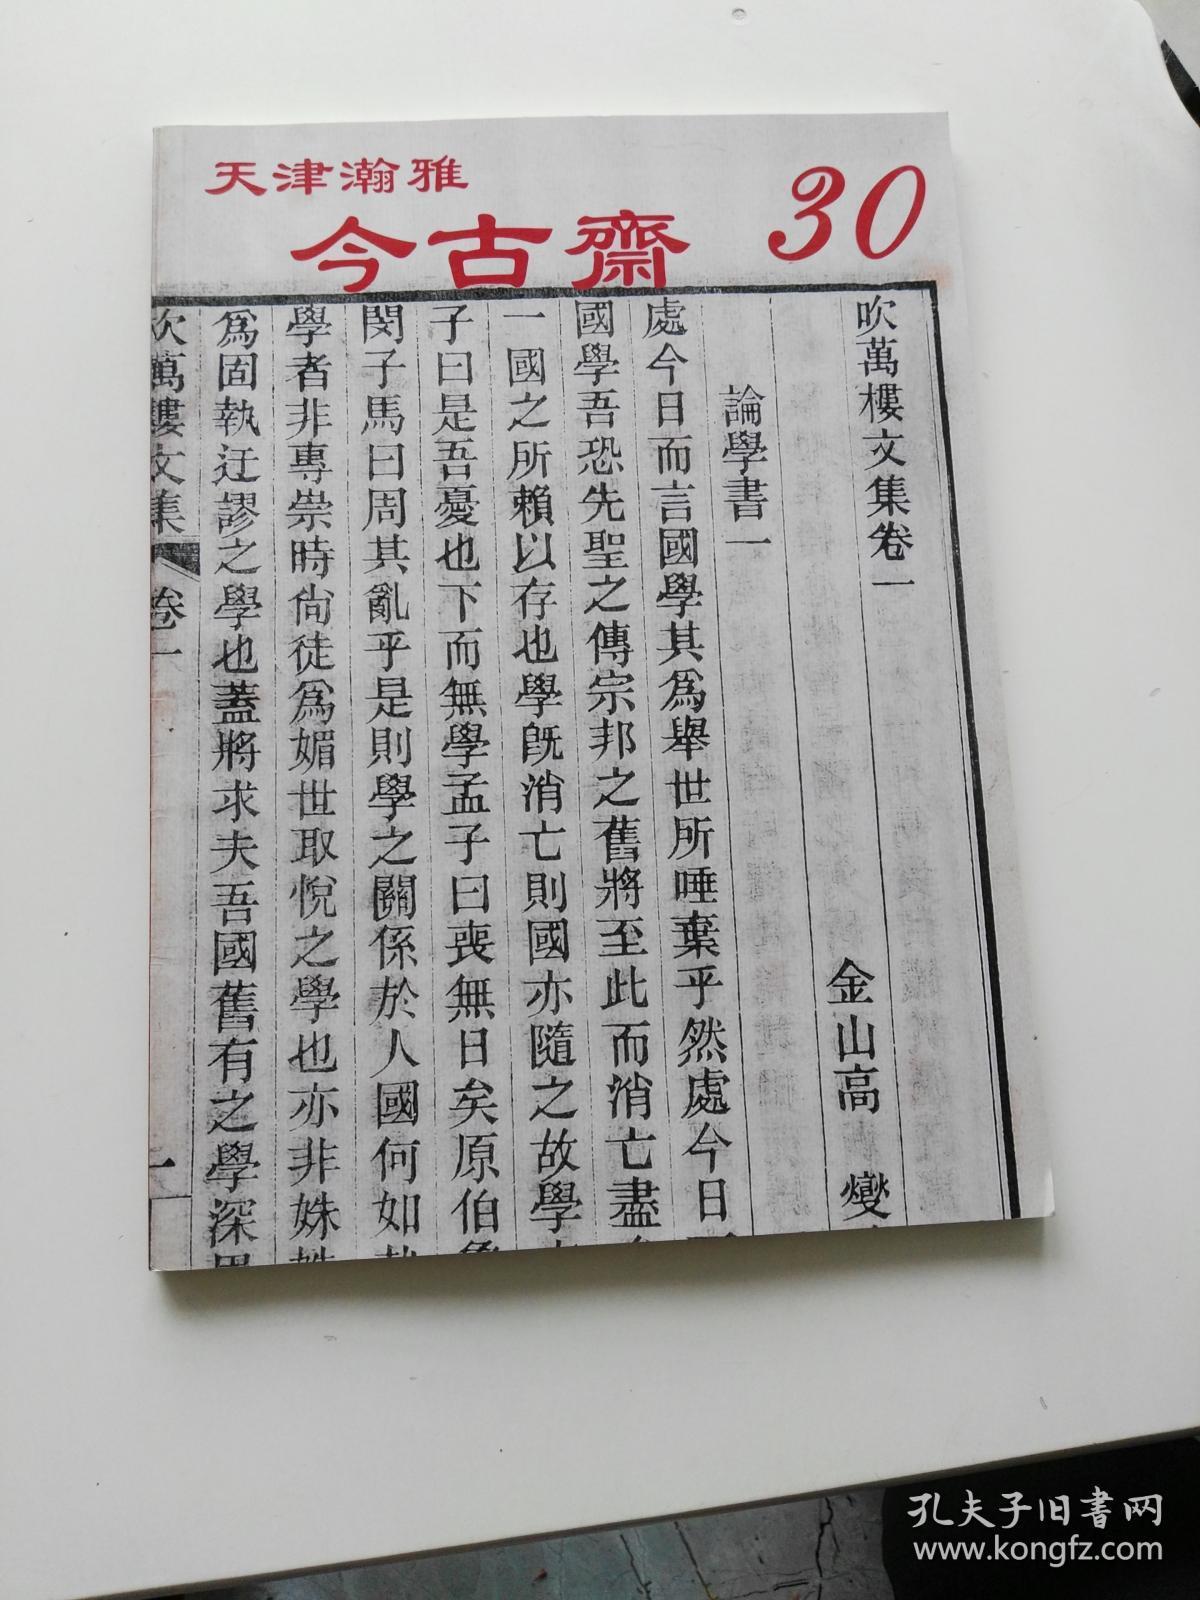 天津瀚雅
今古齋
30
吹萬樓文集卷一
金山高 燮
論學書一
處今日而言國學其爲舉世所唾棄乎然處今日
國學吾恐先聖之傳宗邦之舊將至此而消亡盡
一國之所賴以存也學既消亡則國亦隨之故學
子曰是吾憂也下而無學孟子曰喪無日矣原伯魯
閔子馬曰周其亂乎是則學之關係於人國何如
學者非專崇時尙徒爲媚世取悅之學也亦非姝姝
爲固執迂謬之學也蓋將求夫吾國舊有之學深
吹萬樓文集 卷一 一
孔夫子旧书网
www.kongfz.com